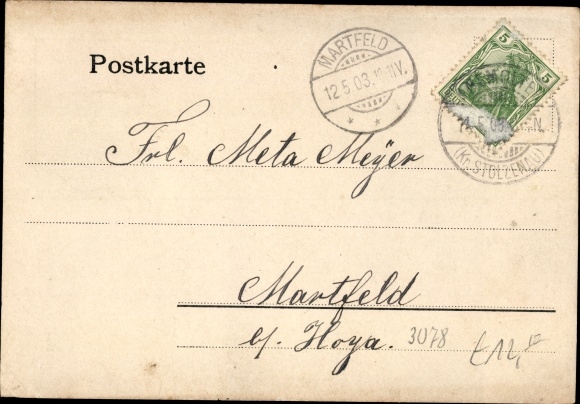 Postkarte
MARTFELD
12.5.03.
5 5
(Kr. STOLZENAU)
Frl. Meta Meyer
Martfeld
b/. Hoya.
3078